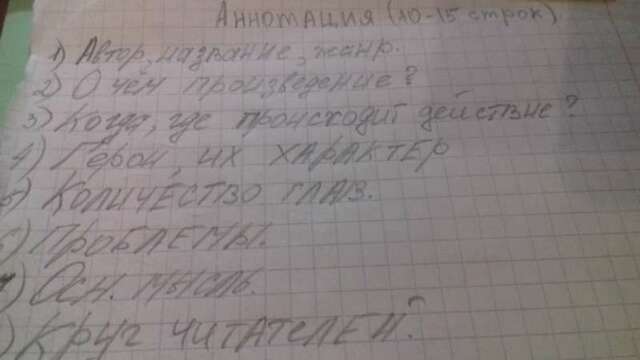 Аннотация (10-15 строк)
1) Автор, название, жанр.
2) О чём произведение?
3) Когда, где происходит действие?
4) Герои, их характер
5) Количество глав.
6) Проблемы.
7) Осн. мысль.
) Круг читателей.